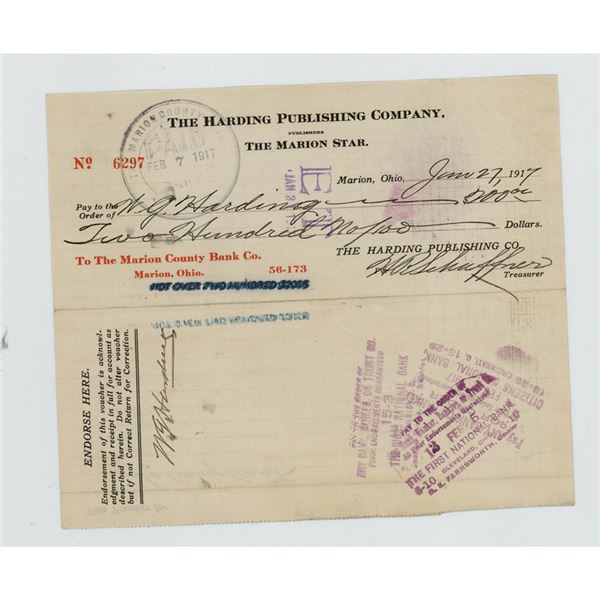 THE HARDING PUBLISHING COMPANY,
PUBLISHERS
THE MARION STAR.
No 6297
MARION COUNTY
PAID
FEB 7 1917
Marion, Ohio, Jan 27, 1917
Pay to the Order of W. G. Harding $200.00
Two Hundred No/100 Dollars.
To The Marion County Bank Co.
Marion, Ohio. 56-173
THE HARDING PUBLISHING CO.
Treasurer
NOT OVER TWO HUNDRED $200$
ENDORSE HERE.
Endorsement of this voucher is acknowl-
edgment and receipt in full for account as
described herein. Do not alter voucher
but if not Correct Return for Correction.
W G Harding
ANY BANK, BANKER OR TRUST CO.
PRIOR ENDORSEMENTS GUARANTEED
15-3
NATIONAL BANK
CITIZENS NATIONAL BANK
13-26 CINCINNATI, O. 13-26
PAY TO THE ORDER OF
Any Bank, Banker or Trust Co.
12 FEB 5
THE FIRST NATIONAL BANK
6-10 CLEVELAND, OHIO
FARNSWORTH,